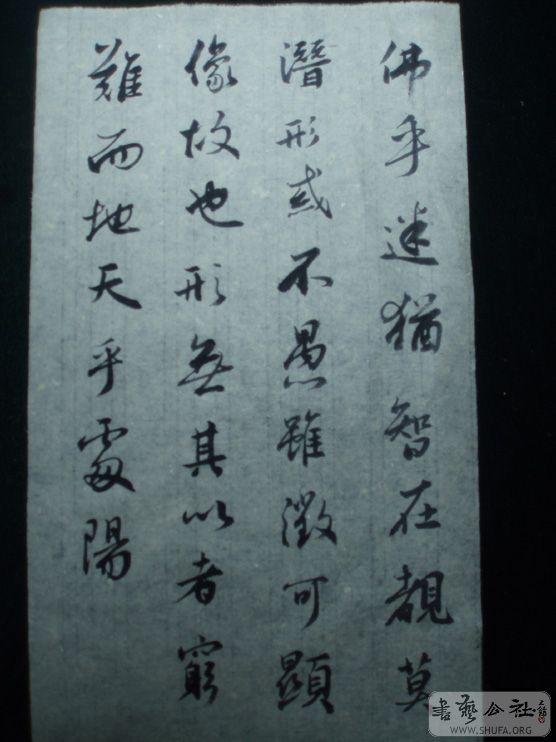 佛乎迷猶智在覩莫
潛形惑不愚雖徵可顯
像故也形無其以者窮
難而地天乎處陽
書藝公社
WWW.SHUFA.ORG